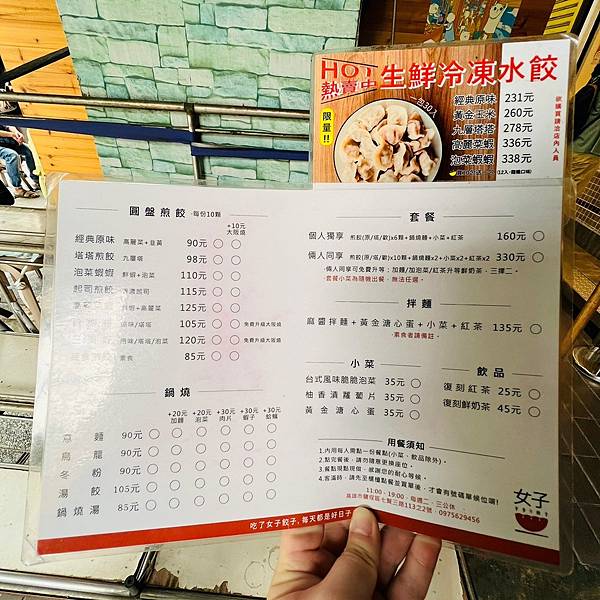 HOT
熱賣中
生鮮冷凍水餃
限量!!
經典原味 231元
黃金玉米 260元
九層塔塔 278元
高麗菜蝦 336元
泡菜蝦蝦 338元
欲購買請洽店內人員
圓盤煎餃 每份10顆
+10元
大阪燒
經典原味 高麗菜+韭黃 90元
塔塔煎餃 九層塔 98元
泡菜蝦蝦 鮮蝦+泡菜 110元
起司煎餃 115元
鮮蝦+高麗菜 125元
105元 免費升級大阪燒
120元 免費升級大阪燒
素食 85元
鍋燒
+20元 加麵
+20元 泡菜
+30元 肉片
+30元 蝦子
+30元 蛤蠣
意麵 90元
烏龍 90元
冬粉 90元
湯餃 105元
鍋燒湯 85元
套餐
個人獨享 煎餃(原/塔/歡)x6顆+鍋燒麵+小菜+紅茶 160元
倆人同享 煎餃(原/塔/歡)x10顆+鍋燒麵x2+小菜x2+紅茶x2 330元
·倆人同享可免費升等:加麵/加泡菜/紅茶升等鮮奶茶,三擇二。
·套餐小菜為隨機出餐,無法任選。
拌麵
麻醬拌麵+黃金溏心蛋+小菜+紅茶 135元
·素食者請備註。
小菜
台式風味脆脆泡菜 35元
柚香漬蘿蔔片 35元
黃金溏心蛋 35元
飲品
復刻紅茶 25元
復刻鮮奶茶 45元
用餐須知
1.內用每人需點一份餐點(小菜、飲品除外)。
2.點完餐後,請勿隨意更換座位。
3.餐點現點現做,感謝您的耐心等候。
4.客滿時,請先至櫃檯點餐並買單後,才會有號碼單候位喔!
11:00-19:00,每週二、三公休
高雄市鹽埕區七賢三路113之2號 0975629456
女子
吃了女子餃子,每天都是好日子